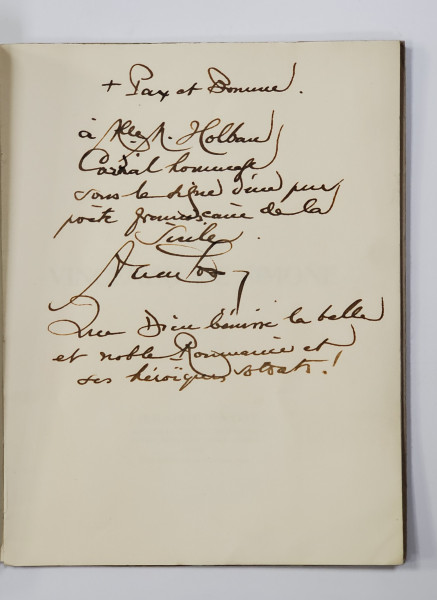 + Pax et Bonum.
à M. Holban
Cordial hommage
sous le signe d'un pur
poète franciscain de la
Sicile.
Que Dieu bénisse la belle
et noble Roumanie et
ses héroïques soldats!